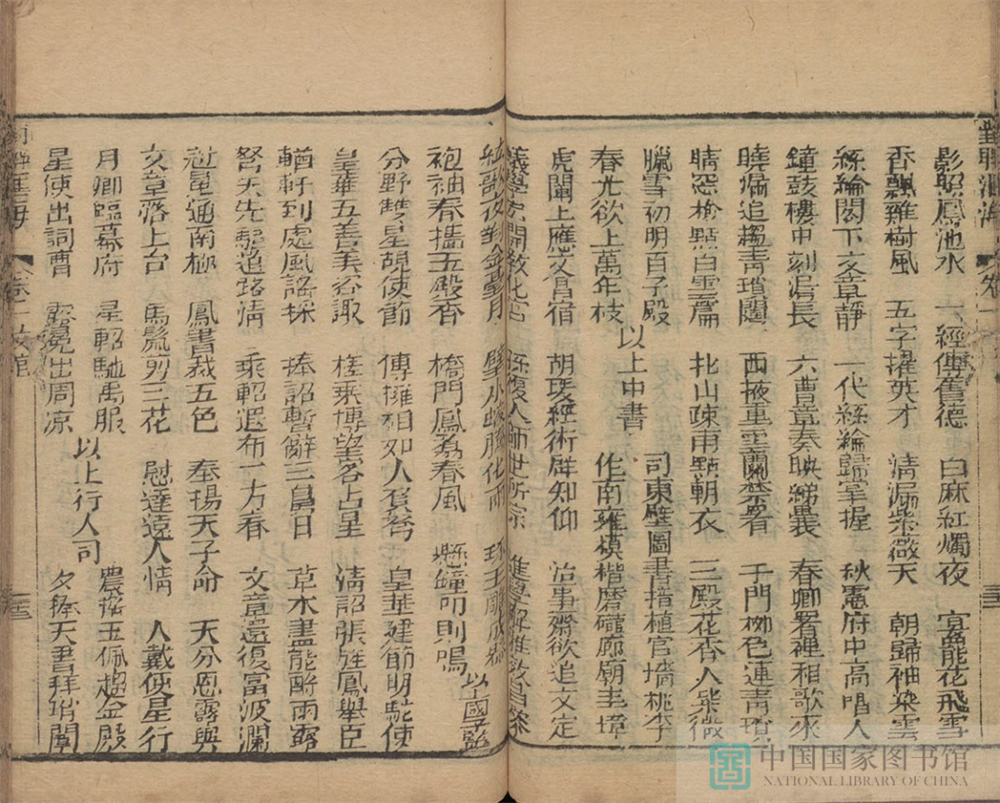 對聯滙海 卷十一
影照鳳池水 一經傳舊德 白麻紅燭夜 宮龍花飛雪
香飄雞樹風 五字擢英才 清漏紫薇天 朝歸袖染雲
絲綸閣下文章靜 一代絲綸歸掌握 秋憲府中高唱人
鐘鼓樓中刻漏長 六曹章奏映綈囊 春卿署裡相歌來
曉漏追趨青瑣闥 西掖重雲開禁署 千門柳色連青瑣
晴窓檢點白雲篇 北山疎雨點朝衣 三殿花香入紫微
臘雪初明百子殿 司東壁圖書揩植官墻桃李
春光欲上萬年枝 以上中書 作南雍模楷磨礲廊廟圭璋
虎闈上應文昌宿 胡瑗經術厪知仰 治事齋欲追文定
義學宏開教化 孫復人師世所宗
絃歌夜對金臺月 璧水 騰化雨
袍袖春揎五殿香 橋門鳳 春風 懸鐘叩則鳴 以上國監
分野雙星覘使節 傳擁相如人負弩 皇華建節明駝使
皇華五善美咨諏 槎乘博望客占星 清詔張旌鳳舉臣
輶軒到處風謠採 捧詔暫辭三島日 草木盡能酧雨露
弩矢先驅道路情 乘軺遐布一方春 文章還復富波瀾
冠冕通南極 鳳書裁五色 奉揚天子命 天分恩露與
文章落上台 馬鬣剪三花 慰達遠人情 人戴使星行
月卿臨幕府 星軺馳禹服 玉佩趨金殿
星使出詞曹 冠冕出周凉 以上行人司 夕捧天書拜瑣闈